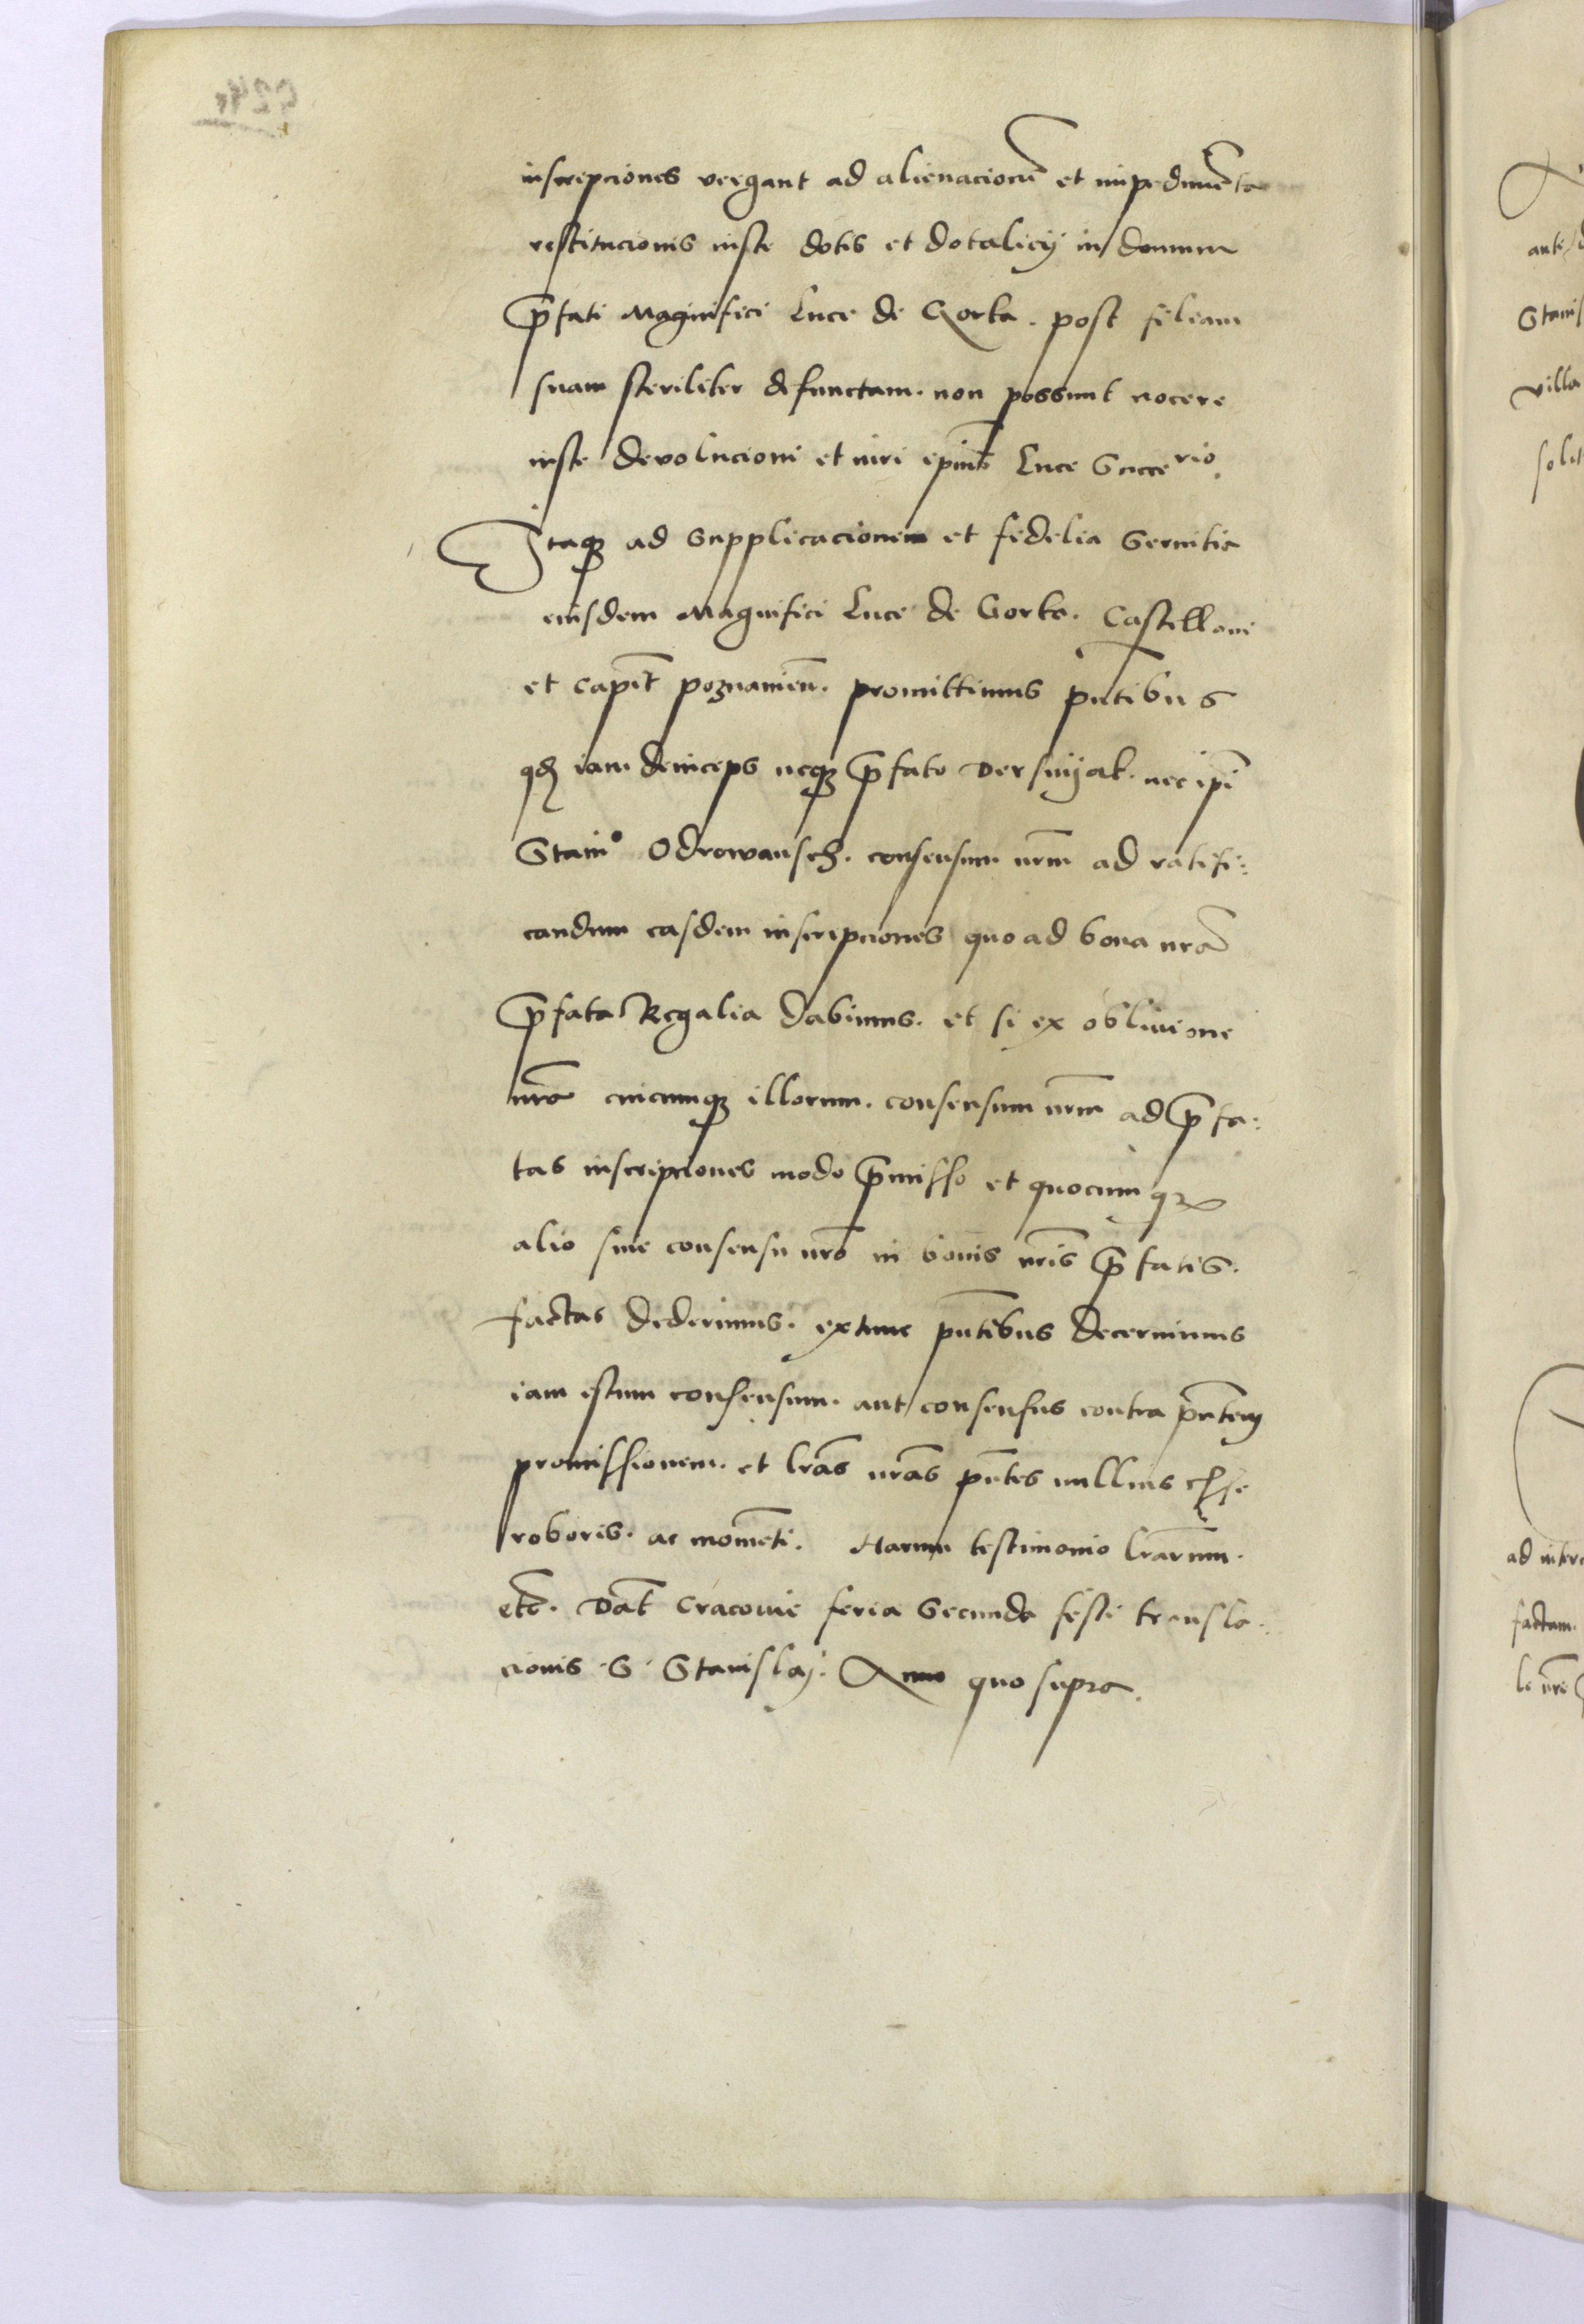 inscripciones vergant ad alienacionē et impedimēta
restitucionis iuste dotis et dotalicij in domum
p̄fati Magnifici Luce de Gorka. post filiam
suam steriliter defunctam. non possunt nocere
iuste devolucioni et iuri eiusdē Luce Soceri.
Itaqꝫ ad supplicacionem et fidelia servitia
eiusdem Magnifici Luce de Gorka. Castellani
et capit̄ poznanien̄. promittimus pn̄tibus
qđ iam deinceps neqꝫ p̄fato Dersnijak. nec ip̄i
Stani° Odrowansch. consensum nr̄m ad ratifi:
candum easdem inscripciones quo ad bona nr̄a
p̄fata Regalia dabimus. et si ex oblivione
nr̄a cuicumqꝫ illorum. consensum nr̄m ad p̄fa:
tas inscripciones modo p̄misso et quocumqꝫ
alio sine consensu nr̄o in bonis nr̄is p̄fatis.
factas dederimus. extunc pn̄tibus decernimus
iam istum consensum. aut consensus contra pn̄tem
promissionem. et lr̄as nr̄as pn̄tes nullius esse
roboris. ac momēti. Harum testimonio lr̄arum.
etc̄. Dat̄ Cracovie feria secunda festi transla:
cionis S. Stanislaj. Anno quo supra.
ante
Stanis
villa
solit
ad inter
factam.
le nr̄e